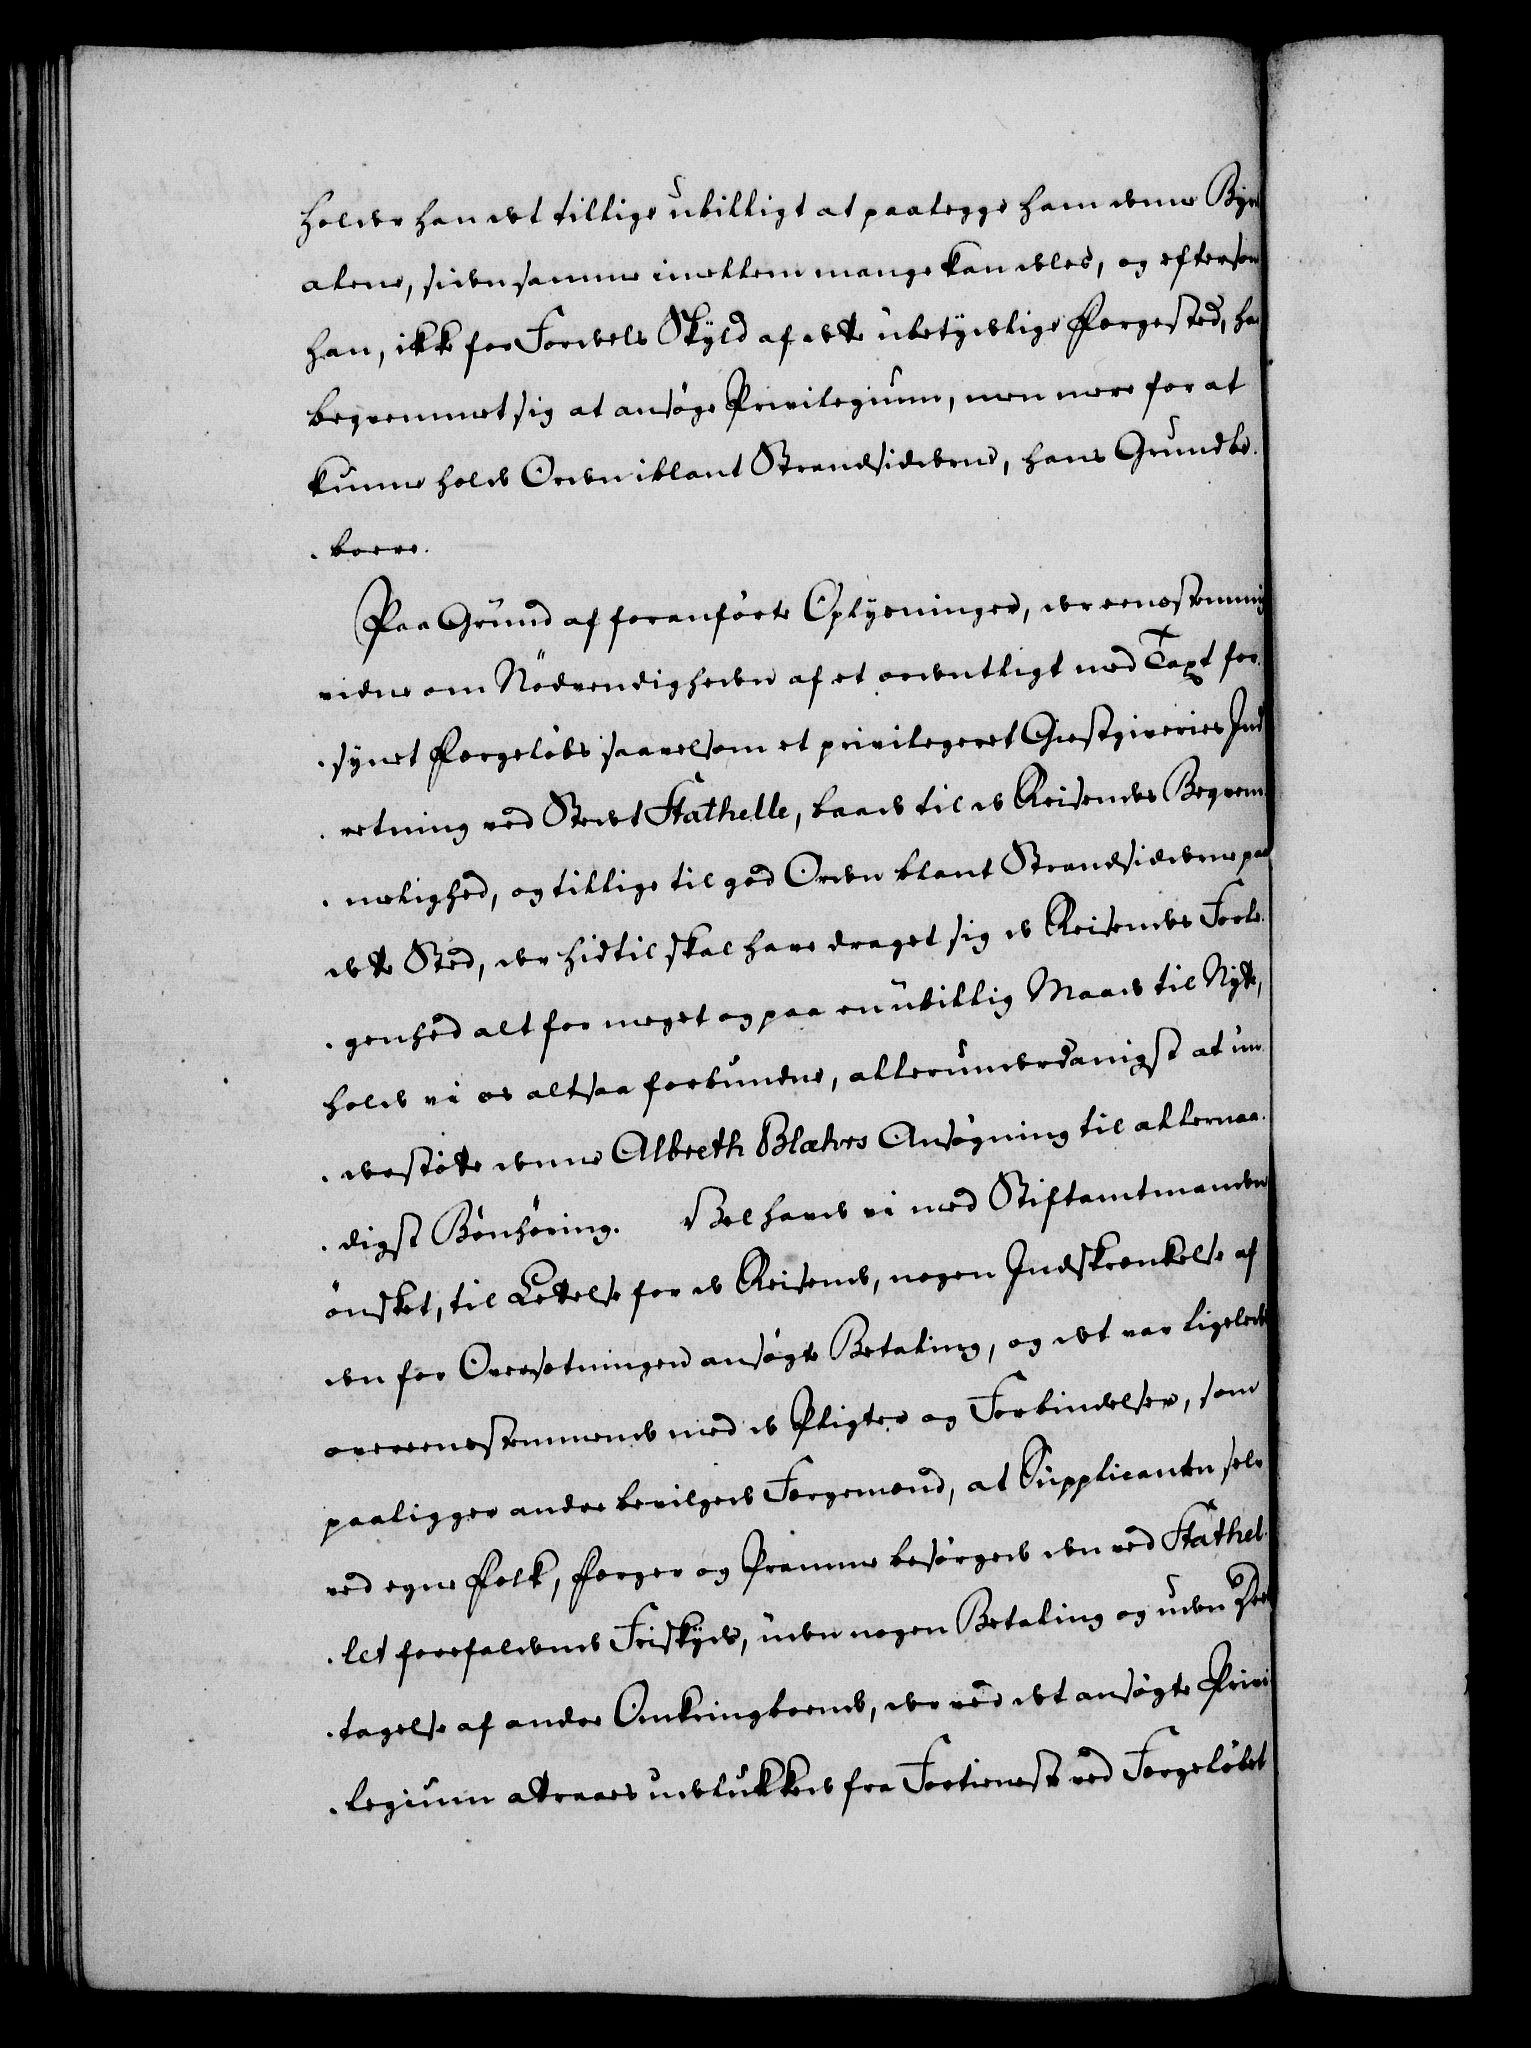 holder han det tillige ubilligt at paalegge ham denne Byrde
alene, siden samme imellem mange kan deeles, og eftersom
han, ikke for Fordels Skyld af dette ubetydelige Færgested, har
beqvemmet sig at ansøge Privilegium, men mere for at
kunne holde Orden iblant Strandsidderne, hans Grundbe-
-boere.
Paa Grund af foranførte Oplysninger, der eenstemmig
vidne om Nødvendigheden af et ordentligt med Taxt for-
-synet Færgeløbs saavelsom et privilegeret Giestgiveries Ind-
-retning ved Stedet Stathelle, baade til de Reisendes Beqvem-
-melighed, og tillige til god Orden blant Strandsidderne paa
dette Sted, der hidtil skal have draget sig de Reisendes Forle-
-genhed alt for meget og paa en ubillig Maade til Nytte,
holde vi os altsaa forbundne, allerunderdanigst at un-
-derstøtte denne Albreth Blæhrs Ansøgning til allernaa-
-digst Bønhøring. Vel havde vi med Stiftamtmanden
ønsket, til Lettelse for de Reisende, nogen Indskrænkelse af
den for Oversetningen ansøgte Betaling, og det var ligeledes
overeensstemmende med de Pligter og Forbindelser, som
paaligger andre bevilgede Færgemænd, at Supplicanten selv
ved egne Folk, Færger og Pramme besørgede den ved Stathel-
-let forefaldende Friskyds, uden nogen Betaling og uden Deel-
-tagelse af andre Omkringboende, der ved det ansøgte Privi-
-legium attraaes udelukkede fra Fortieneste ved Færgeløbet